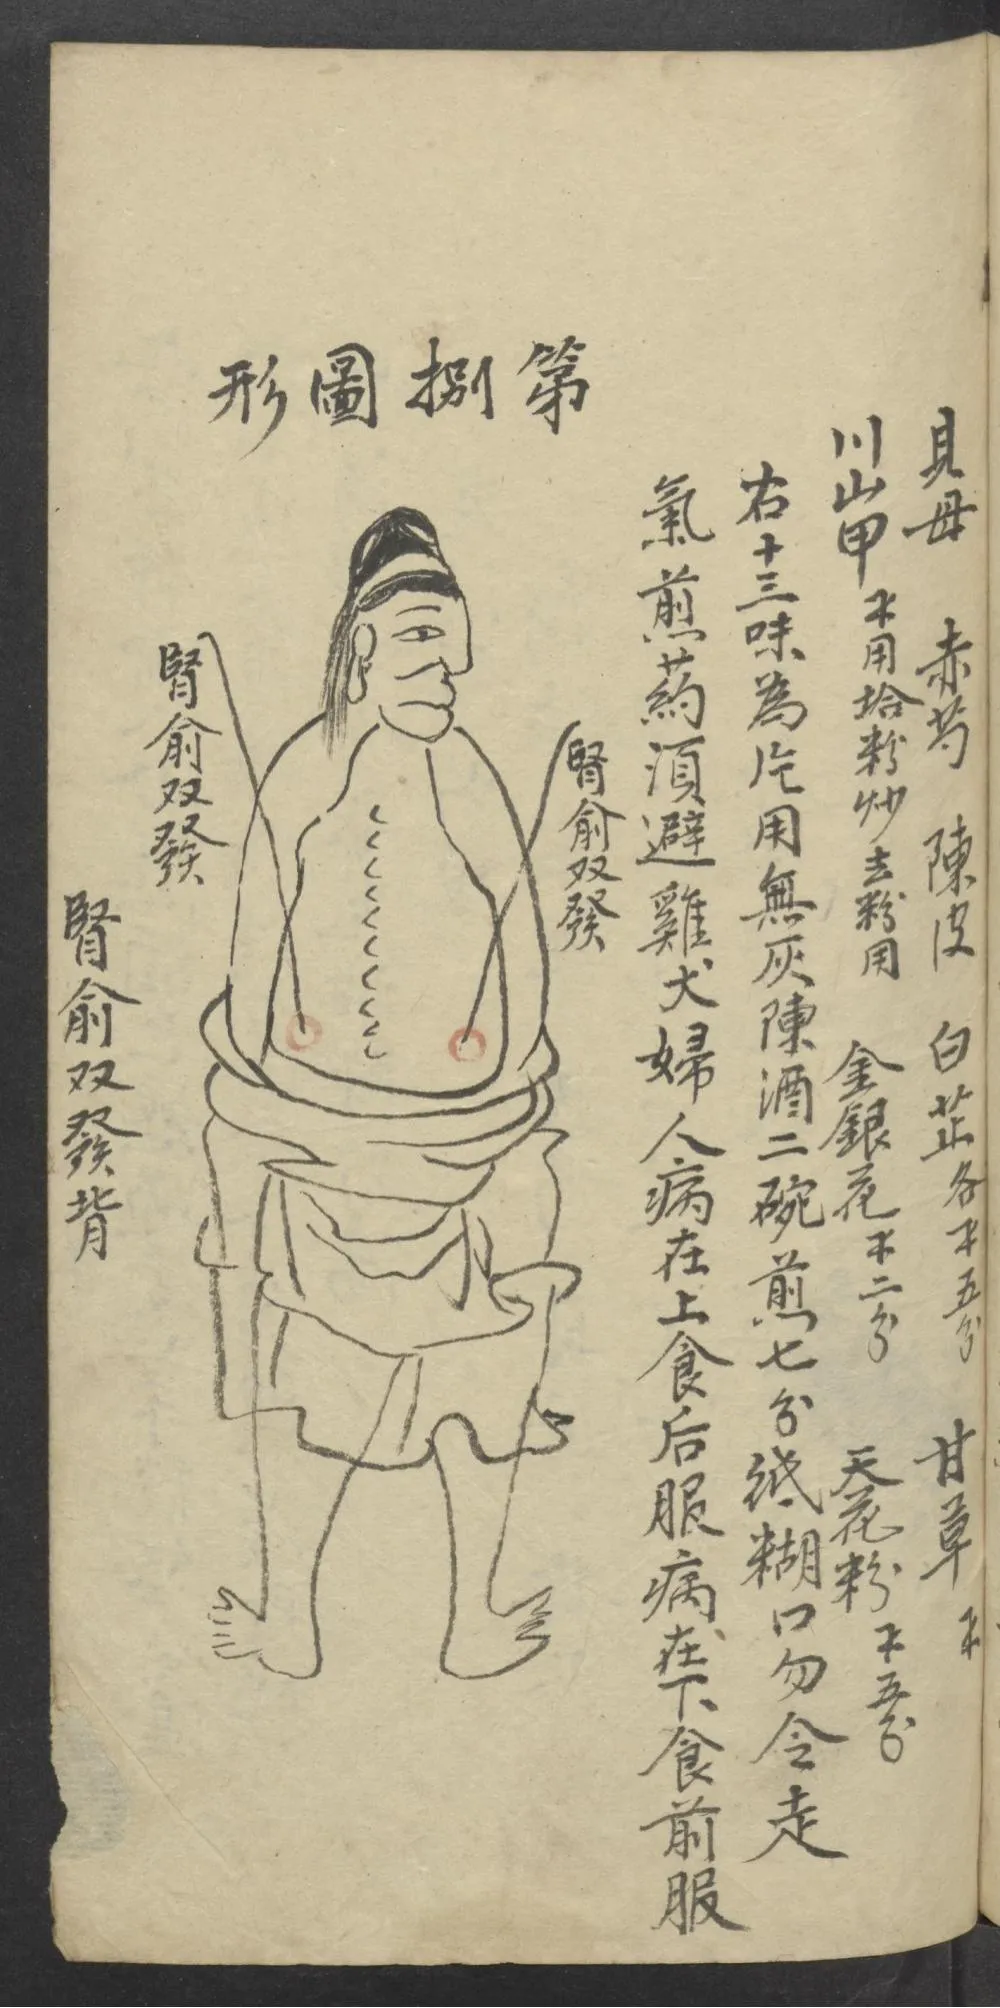 貝母 赤芍 陳皮 白芷各不五分 甘草不
川山甲不用蛤粉炒去粉用 金銀花不二分 天花粉不五分
右十三味為片用無灰陳酒二碗煎七分紙糊口勿令走
氣煎药須避雞犬婦人病在上食后服病在下食前服
第捌圖形
腎俞双發
腎俞双發
腎俞双發背